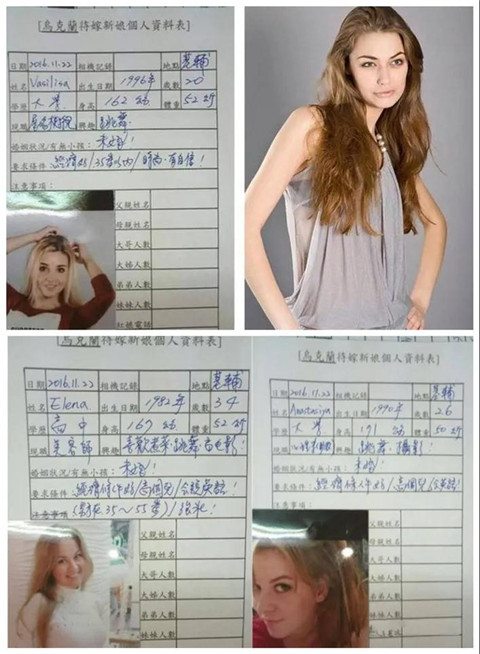 [烏克蘭待嫁新娘個人資料表]
日期 2016.11.22 相機記錄 地點 基輔
姓名 Vasilisa 出生日期 1996年 歲數 20
學歷 大學 身高 162 體重 52
現職 興趣 跳舞
婚姻狀況/有無小孩: 未婚!
要求條件: 經濟好/35歲以內/ 有自信!
注意事項:
父親姓名
母親姓名
大哥人數
大姊人數
弟弟人數
妹妹人數
紅娘電話
[烏克蘭待嫁新娘個人資料表]
日期 2016.11.22 相機記錄 地點 基輔
姓名 Elena. 出生日期 1982年 歲數 34
學歷 高中 身高 169 體重 52
現職 美容師 興趣 喜歡 跳舞 看電影!
婚姻狀況/有無小孩: 未婚!
要求條件: 經濟條件好/高個兒/会説英語!
注意事項: 35~55歲)
父親姓名
母親姓名
大哥人數
大姊人數
弟弟人數
妹妹人數
[烏克蘭待嫁新娘個人資料表]
日期 2016.11.22 相機記錄 地點 基輔
姓名 Anastasiya 出生日期 1990年 歲數 26
學歷 大學 身高 171 體重 50
現職 興趣 跳舞、攝影!
婚姻狀況/有無小孩: 未婚!
要求條件: 經濟條件好/高個兒/会英語!
注意事項:
父親姓名
母親姓名
大哥人數
大姊人數
弟弟人數
妹妹人數